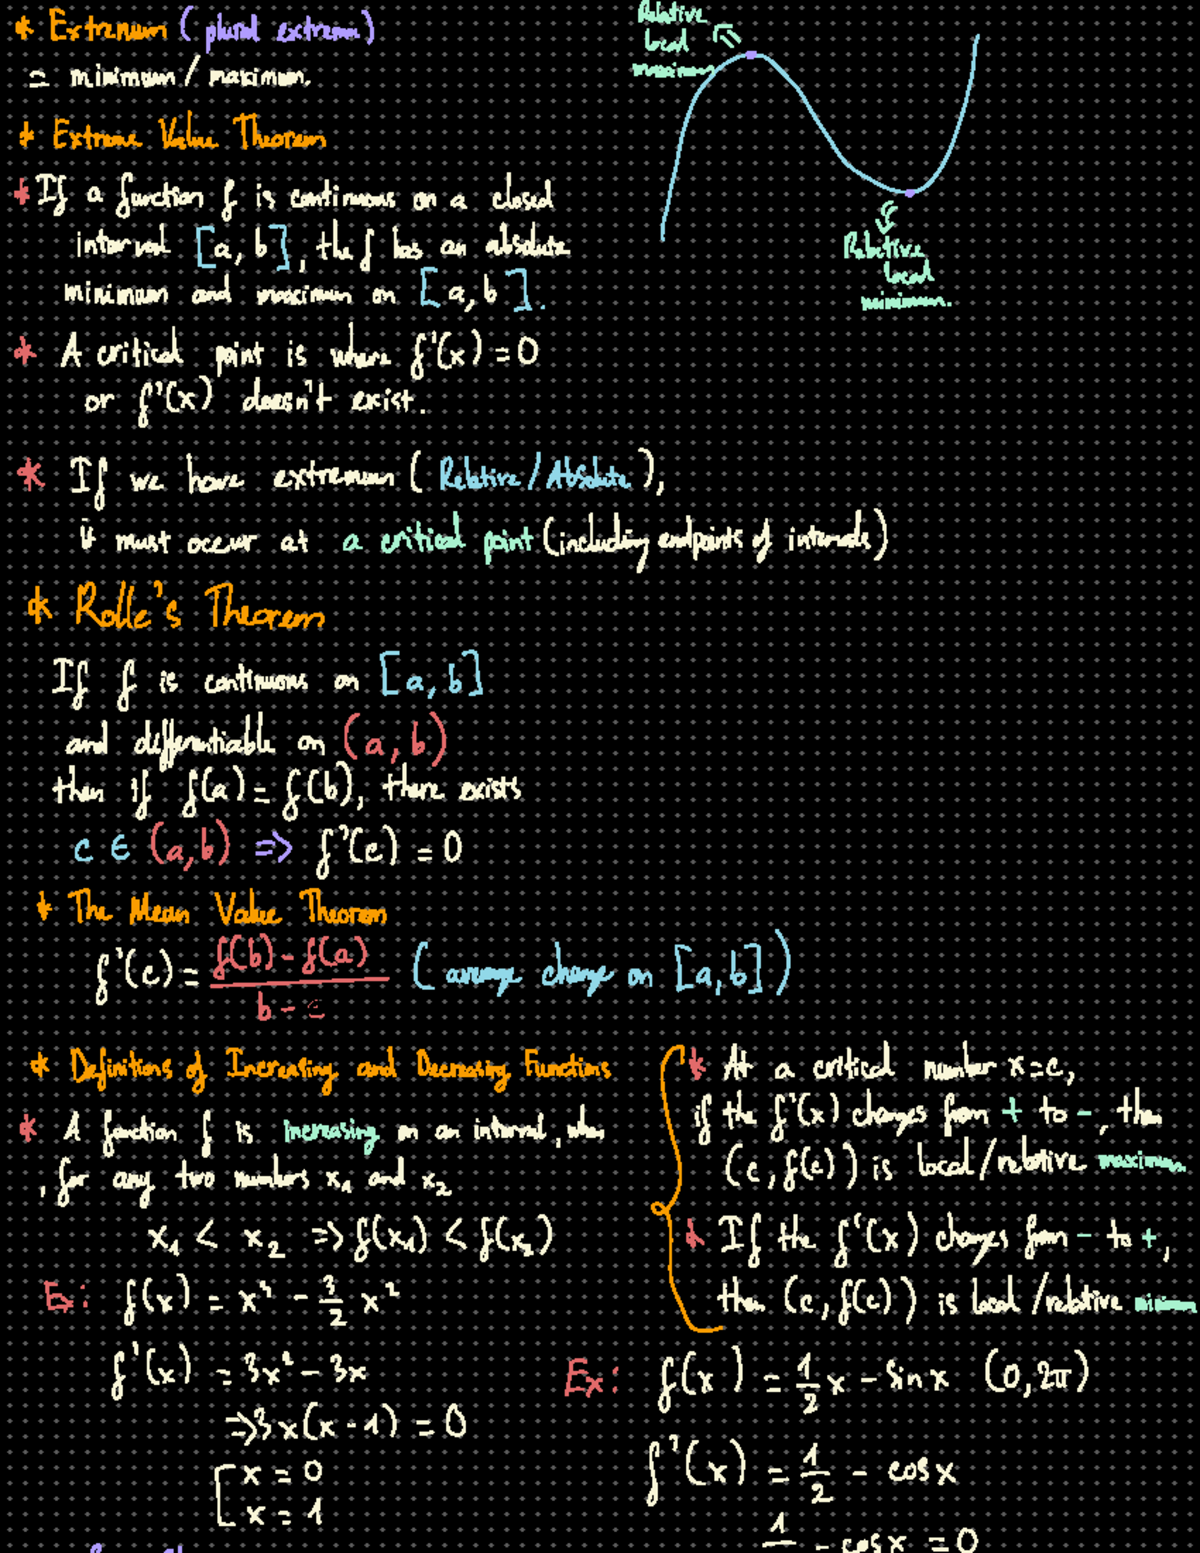 * Extremum (plural extrema)
= minimum / maximum.
* Extreme Value Theorem
* If a function f is continuous on a closed
interval [a, b], the f has an absolute
minimum and maximum on [a, b].
* A critical point is where f'(x) = 0
or f'(x) doesn't exist.
Relative
local
maximum
Relative
local
minimum.
* If we have extremum (Relative / Absolute),
it must occur at a critical point (including endpoints of intervals)
* Rolle's Theorem
If f is continuous on [a, b]
and differentiable on (a, b)
then if f(a) = f(b), there exists
c ∈ (a, b) => f'(c) = 0
* The Mean Value Theorem
f'(c) = f(b) - f(a) (average change on [a, b])
b -
* Definitions of Increasing and Decreasing Functions
* A function f is increasing on an interval, when
, for any two numbers x₁ and x₂
x₁ < x₂ => f(x₁) < f(x₂)
Ex: f(x) = x³ - 3/2 x²
f'(x) = 3x² - 3x
=> 3x(x - 1) = 0
[ x = 0
x = 1
* At a critical number x = c,
if the f'(x) changes from + to -, then
(c, f(c)) is local/relative maximum
* If the f'(x) changes from - to +,
then (c, f(c)) is local/relative minimum
Ex: f(x) = 1/2 x - sin x (0, 2π)
f'(x) = 1/2 - cos x
1 - cos x = 0